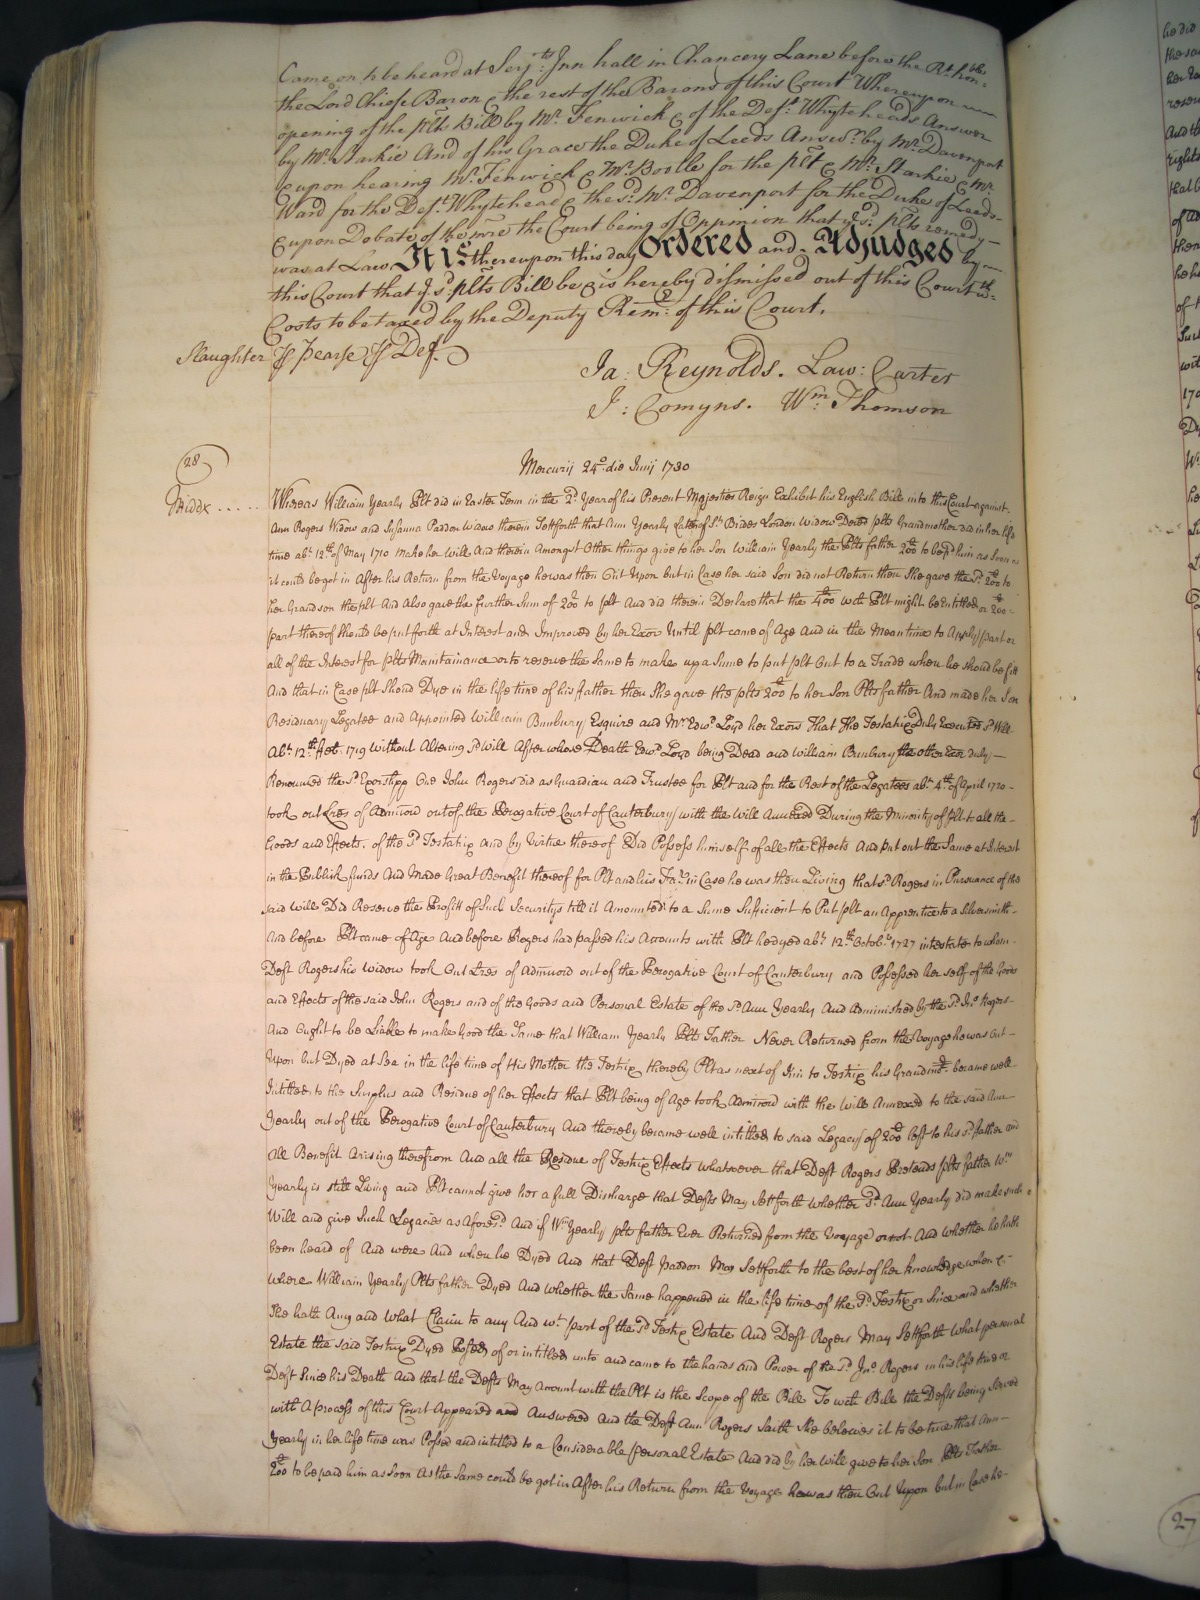 Came on to be heard at Serj:ts Inn hall in Chancery Lane before the Rt. hon:ble
the Lord Chiefe Baron & the rest of the Barons of this Court Whereupon
opening of the plts Bill by Mr. Fenwick & of the Def:t Whyteheads Answer
by Mr. Starkie And of his Grace the Duke of Leeds Answr. by Mr. Davenport
& upon hearing Mr. Fenwick & Mr. Bootle for the plt & Mr. Starkie & Mr.
Ward for the Def:t Whytehead & the sd. Mr. Davenport for the Duke of Leeds
& upon Debate of the mre the Court being of Oppinion that ye sd. plts remedy
was at Law It is thereupon this day Ordered and Adjudged by
this Court that ye sd. plts Bill be & is hereby dismissed out of this Court wth:
Costs to be taxed by the Deputy Rem:r of this Court.
Slaughter Pearse Def.
Ja: Reynolds. Law: Carter
J: Comyns. Wm: Thomson
28
Mercurij 24o. die Junij 1730
Middx .....
Whereas William Yearly Plt did in Easter Term in the 2d. Year of his Present Majesties Reign Exhibit his English Bill into this Court against
Ann Rogers Widow and Susanna Paddon Widow therein Settforth that Ann Yearly Late of St. Brides London Widow Deced plts Grandmother did in her life
time abt. 12th of May 1710 make her Will And therein Amongst Other things give to her Son William Yearly the Plts father 200 to be pd him as soon as
it could be got in After his Return from the Voyage he was then Out Upon but in Case her said Son did not Return then She gave the sd. 200 to
her Grandson the plt And Also gave the further Sum of 200 to plt And did therein Declare that the 400 wch Plt might be Entitled or 200
part thereof should be put forth at Interest and Improved by her Exors Until plt came of Age And in the Meantime to Apply part or
all of the Interest for plts Maintainance or to reserve the Same to make up a Sume to put plt Out to a Trade when he should be fitt
And that in Case plt Should Dye in the life time of his father then She gave the plts 200 to her Son Plts father And made her Son
Residuary Legatee and Appointed William Bunbury Esquire and Mr. Edwd. Loyd her Exors That the Testatrix Duly Executed sd. Will
Abt. 12th 1719 without Altering sd Will After whose Death Edwd. Loyd being Dead and William Bunbury the other Exor duly
Renounced the sd. Exorshipp One John Rogers did as Guardian and Trustee for Plt and for the Rest of the Legatees abt. 4th of April 1720
took out Lres of Admicon out of the Perogative Court of Canterbury with the Will Annexed During the Minority of Plt to all the
Goods and Effects of the sd. Testatrix and by Virtue thereof Did Possess himself of all the Effects And put out the Same at Interest
in the Publick funds And Made Great Benefit thereof for Plt and his Fa:r in Case he was then Living that sd. Rogers in Pursuance of the
said will Did Reserve the Profitt of such Securitys till it Amounted to a Sume Sufficient to Put plt an Apprentice to a Silversmith
And before Plt came of Age And before Rogers had passed his Accounts with Plt he dyed abt. 12th Octobr. 1727 intestate to whom
Deft Rogers his Widow took Out Lres of Admicon out of the Perogative Court of Canterbury and Possessed her self of the Goods
and Effects of the said John Rogers and of the Goods and Personal Estate of the sd. Ann Yearly And Administred by the sd. Jno. Rogers
And Ought to be Liable to make Good the Same that William Yearly Plts Father Never Returned from the Voyage he was Out
Upon but Dyed at Sea in the life time of His Mother the Testrix thereby Plt as next of Kin to Testrix his Grandmo:r became well
Intitled to the Surplus and Residue of her Effects that Plt being of Age took Admicon with the Will Annexed to the said Ann
Yearly out of the Perogative Court of Canterbury And thereby became well intitled to said Legacy of 200 left to his sd. father and
All Benefit Arising therefrom And all the Residue of Testrix Effects whatsoever that Deft Rogers Pretends plts father Wm
Yearly is still Living and Plt cannot give her a full Discharge that Defts May Settforth whether sd. Ann Yearly did make such
Will and give Such Legacies as Aforesd. And if Wm Yearly plts father Ever Returned from the Voyage or not And whether he hath
been heard of And were And when he Dyed And that Deft Paddon May Settforth to the best of her knowledge when &
where William Yearly Plts father Dyed And whether the Same happened in the life time of the sd Testrix or Since and whether
She hath Any and what Claim to any And wt. part of the sd Testrix Estate And Deft Rogers May Settforth what personal
Estate the said Testrix Dyed Possed of or intitled unto and came to the hands and Power of the sd. Jno. Rogers in his life time or
Deft Since his Death And that the Defts May Account with the Plt is the Scope of the Bill To wch Bill the Defts being Served
with A process of this Court Appeared and Answered And the Deft Ann Rogers Saith She beleives it to be true that Ann
Yearly in her life time was Possed and intitled to a Considerable personal Estate And did by her Will give to her Son Plts Father
200 to be paid him as soon As the Same could be got in After his Return from the Voyage he was then Out Upon but in Case he
27